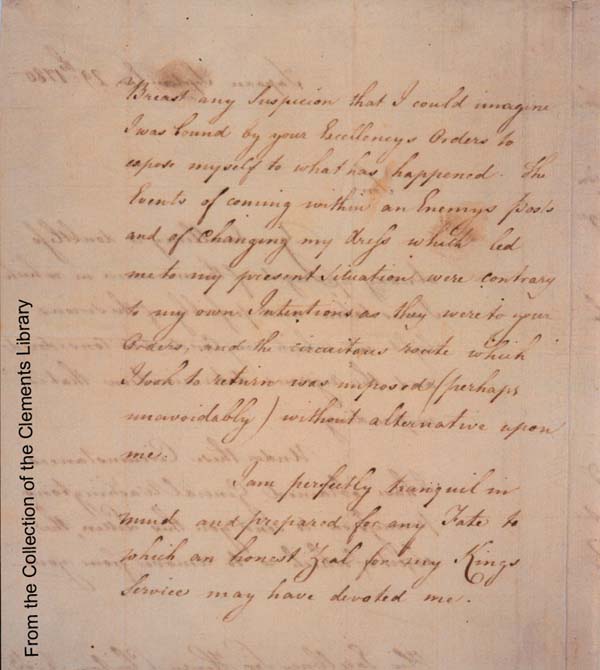 Breast any Suspicion that I could imagine
I was bound by your Excellencys Orders to
expose myself to what has happened. The
Events of coming within an Enemys posts
and of Changing my dress which led
me to my present Situation were contrary
to my own Intentions as they were to your
Orders; and the circuitous route which
I took to return was imposed (perhaps
unavoidably) without alternative upon
me.
I am perfectly tranquil in
mind and prepared for any Fate to
which an honest Zeal for my Kings
Service may have devoted me.
From the Collection of the Clements Library